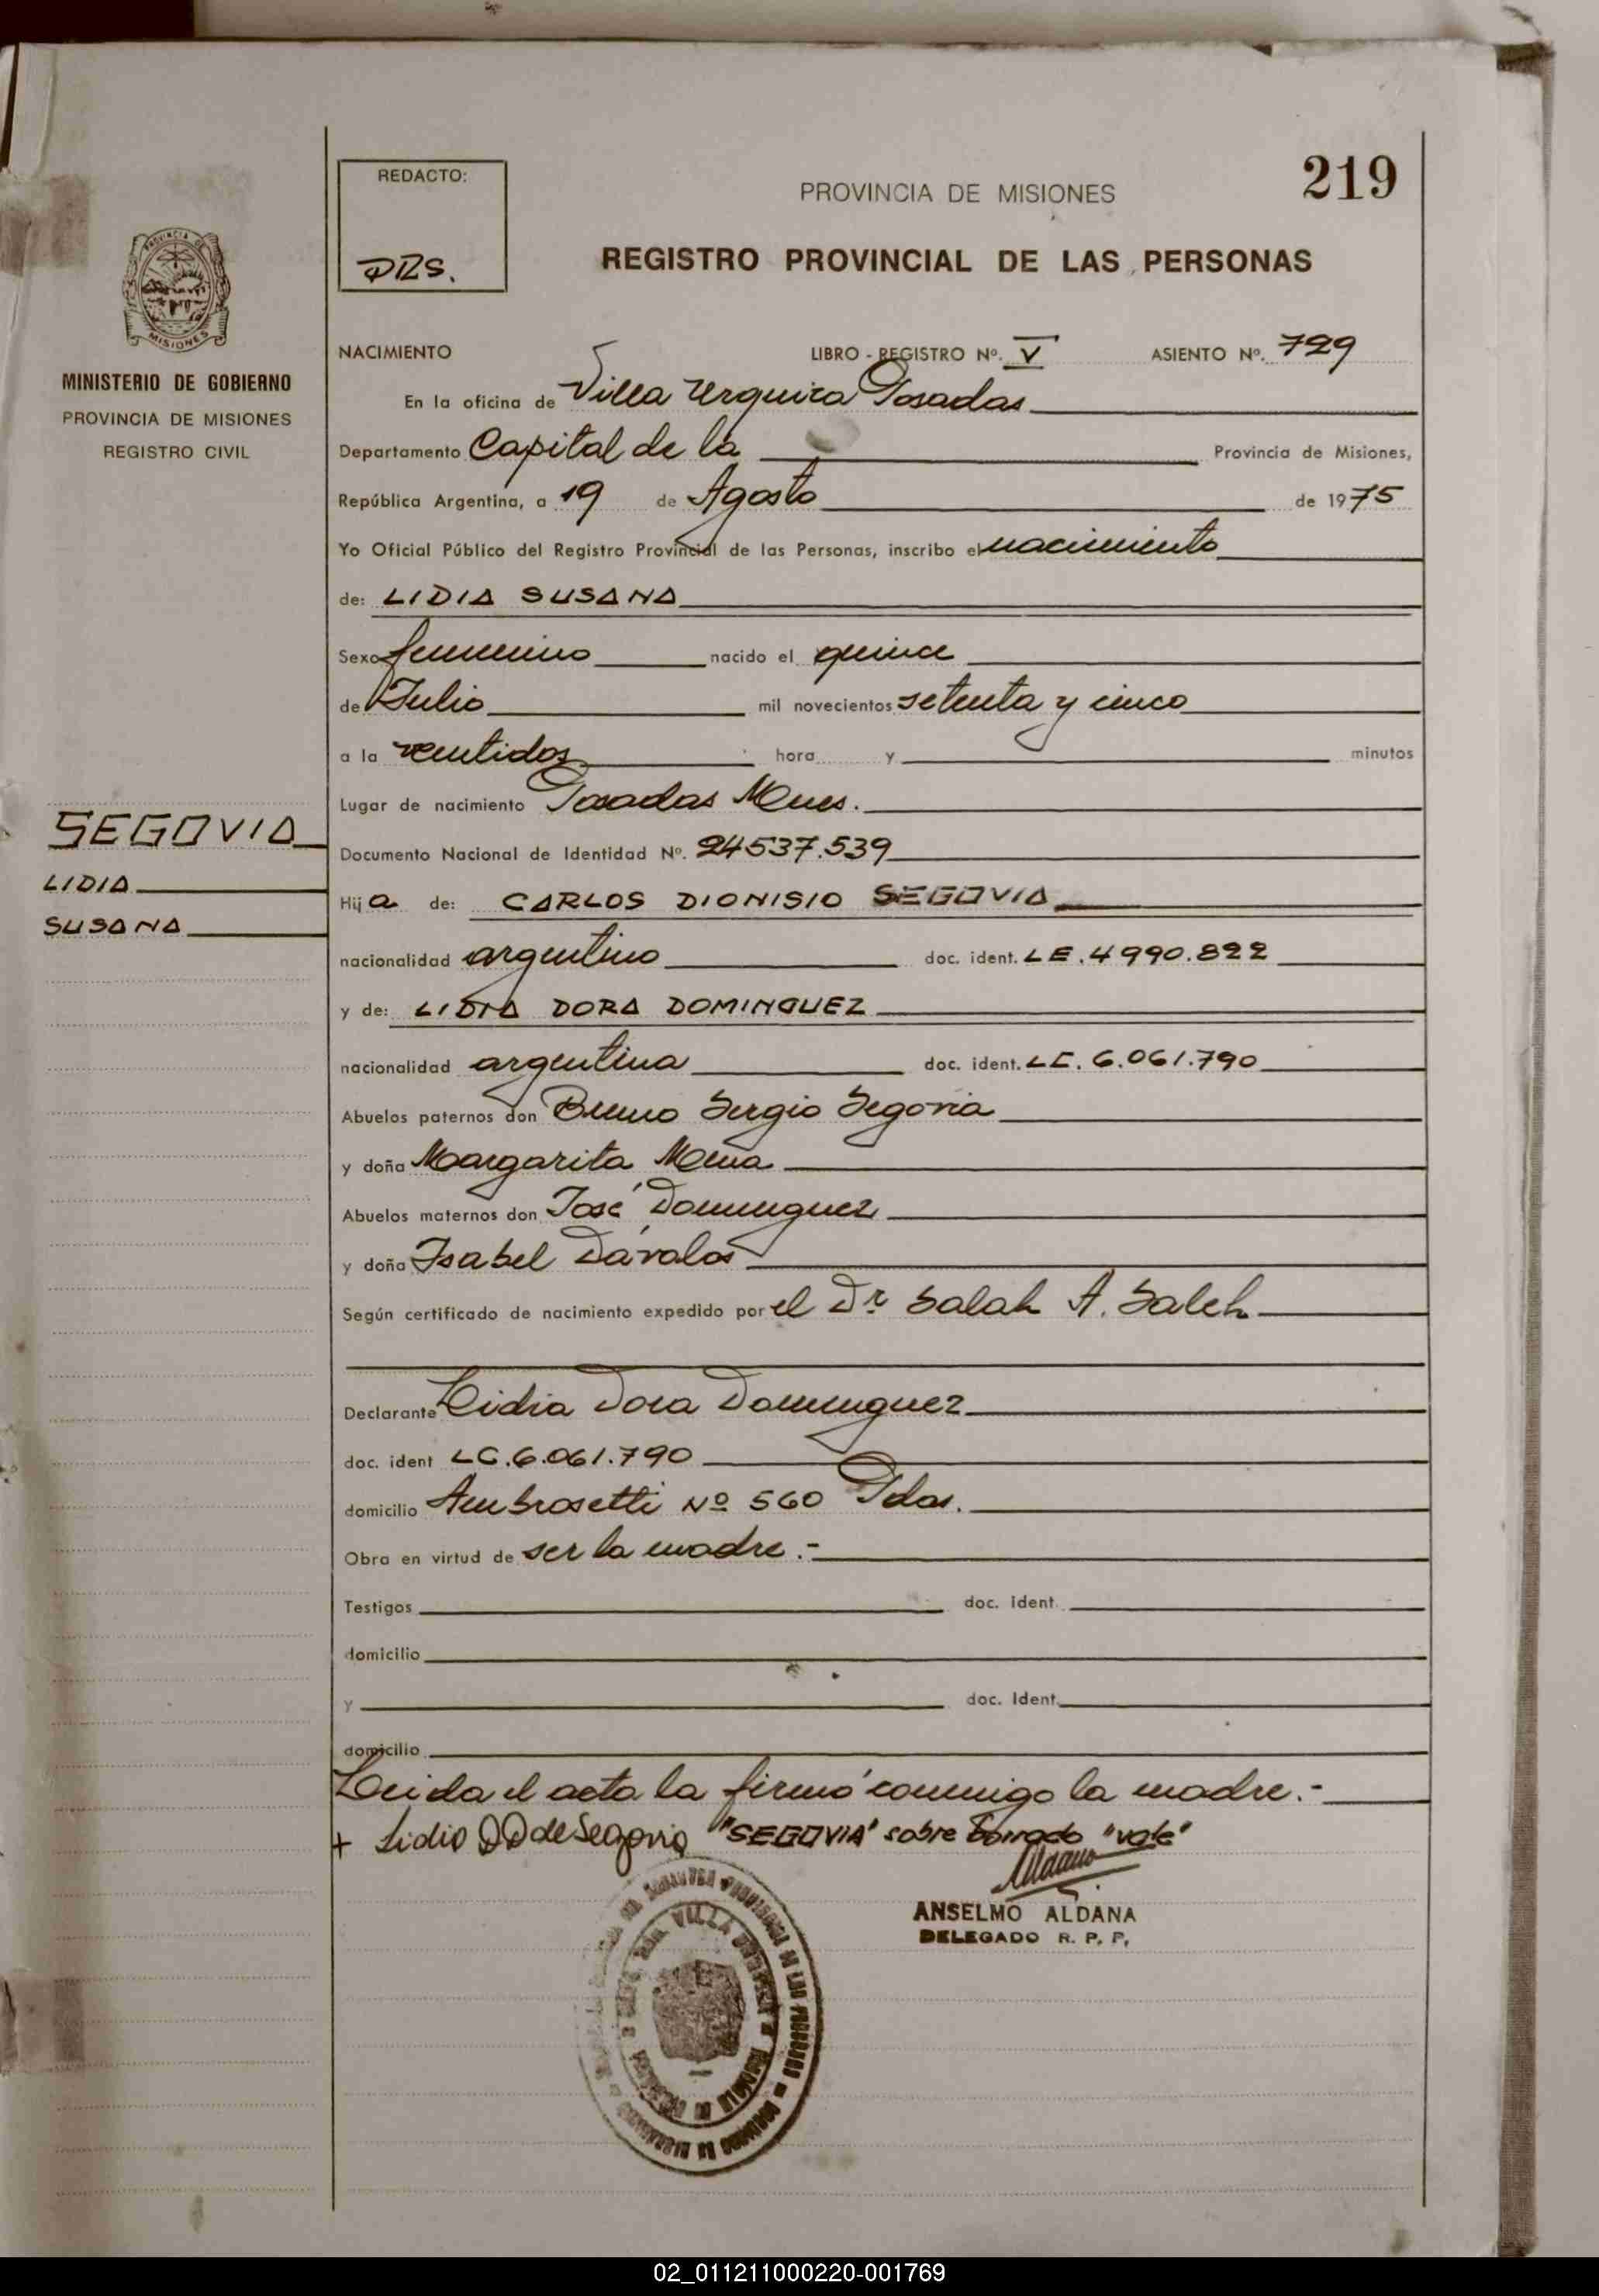 219
REDACTO:
DRS.
PROVINCIA DE MISIONES
REGISTRO PROVINCIAL DE LAS PERSONAS
PROVINCIA DE MISIONES
MINISTERIO DE GOBIERNO
PROVINCIA DE MISIONES
REGISTRO CIVIL
SEGOVIA
LIDIA
SUSANA
NACIMIENTO LIBRO - REGISTRO Nº. V ASIENTO Nº. 729
En la oficina de Villa Urquiza Posadas
Departamento Capital de la Provincia de Misiones,
República Argentina, a 19 de Agosto de 1975
Yo Oficial Público del Registro Provincial de las Personas, inscribo el nacimiento
de: LIDIA SUSANA
Sexo femenino nacido el quince
de Julio mil novecientos setenta y cinco
a la veintidos hora y minutos
Lugar de nacimiento Posadas Mnes.
Documento Nacional de Identidad Nº. 24537.539
Hija de: CARLOS DIONISIO SEGOVIA
nacionalidad argentino doc. ident. LE. 4990.822
y de: LIDIA DORA DOMINGUEZ
nacionalidad argentina doc. ident. LC. 6.061.790
Abuelos paternos don Bruno Sergio Segovia
y doña Margarita Mena
Abuelos maternos don José Dominguez
y doña Isabel Dávalos
Según certificado de nacimiento expedido por el Dr Salah A. Saleh
Declarante Lidia Dora Dominguez
doc. ident LC.6.061.790
domicilio Ambrosetti Nº 560 Pdas.
Obra en virtud de ser la madre.-
Testigos doc. ident.
domicilio
y doc. Ident.
domicilio
Leida el acta la firmó conmigo la madre.-
+ Lidia D D de Segovia "SEGOVIA" sobre borrado "vale"
ANSELMO ALDANA
DELEGADO R. P. P.
VILLA
02_011211000220-001769